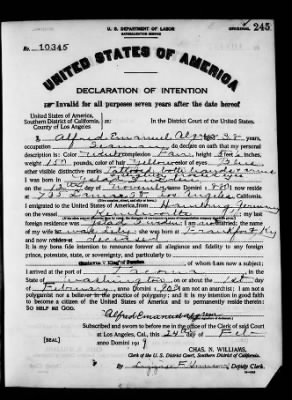 U. S. DEPARTMENT OF LABOR
NATURALIZATION SERVICE
ORIGINAL 245
No. 10345
UNITED STATES OF AMERICA
DECLARATION OF INTENTION
Invalid for all purposes seven years after the date hereof
United States of America,
Southern District of California, ss:
County of Los Angeles
In the District Court of the United States.
I, Alfred Emanuel aged 38 years,
occupation Seaman, do declare on oath that my personal
description is: Color White, complexion Fair, height feet inches,
weight pounds, color of hair Yellow, color of eyes Blue
other visible distinctive marks Tattooed both
I was born in
on the 12th day of November, anno Domini 1880; I now reside
at Los Angeles, California.
I emigrated to the United States of America from Hamburg Germany
on the vessel Kenilworth; my last
foreign residence was; I am married; the name
of my wife is; she was born at Frankfort Ky
and now resides at deceased
It is my bona fide intention to renounce forever all allegiance and fidelity to any foreign
prince, potentate, state, or sovereignty, and particularly to
of Sweden, of whom I am now subject;
I arrived at the port of Tacoma, in the
State of Washington, on or about the 1st day
of February, anno Domini; I am not an anarchist; I am not a
polygamist nor a believer in the practice of polygamy; and it is my intention in good faith
to become a citizen of the United States of America and to permanently reside therein:
SO HELP ME GOD.
Alfred Emanuel
Subscribed and sworn to before me in the office of the Clerk of said Court
at Los Angeles, Cal., this 24th day of Feb.
[SEAL] anno Domini 1919
CHAS. N. WILLIAMS,
Clerk of the U. S. District Court, Southern District of California.
By Deputy Clerk.